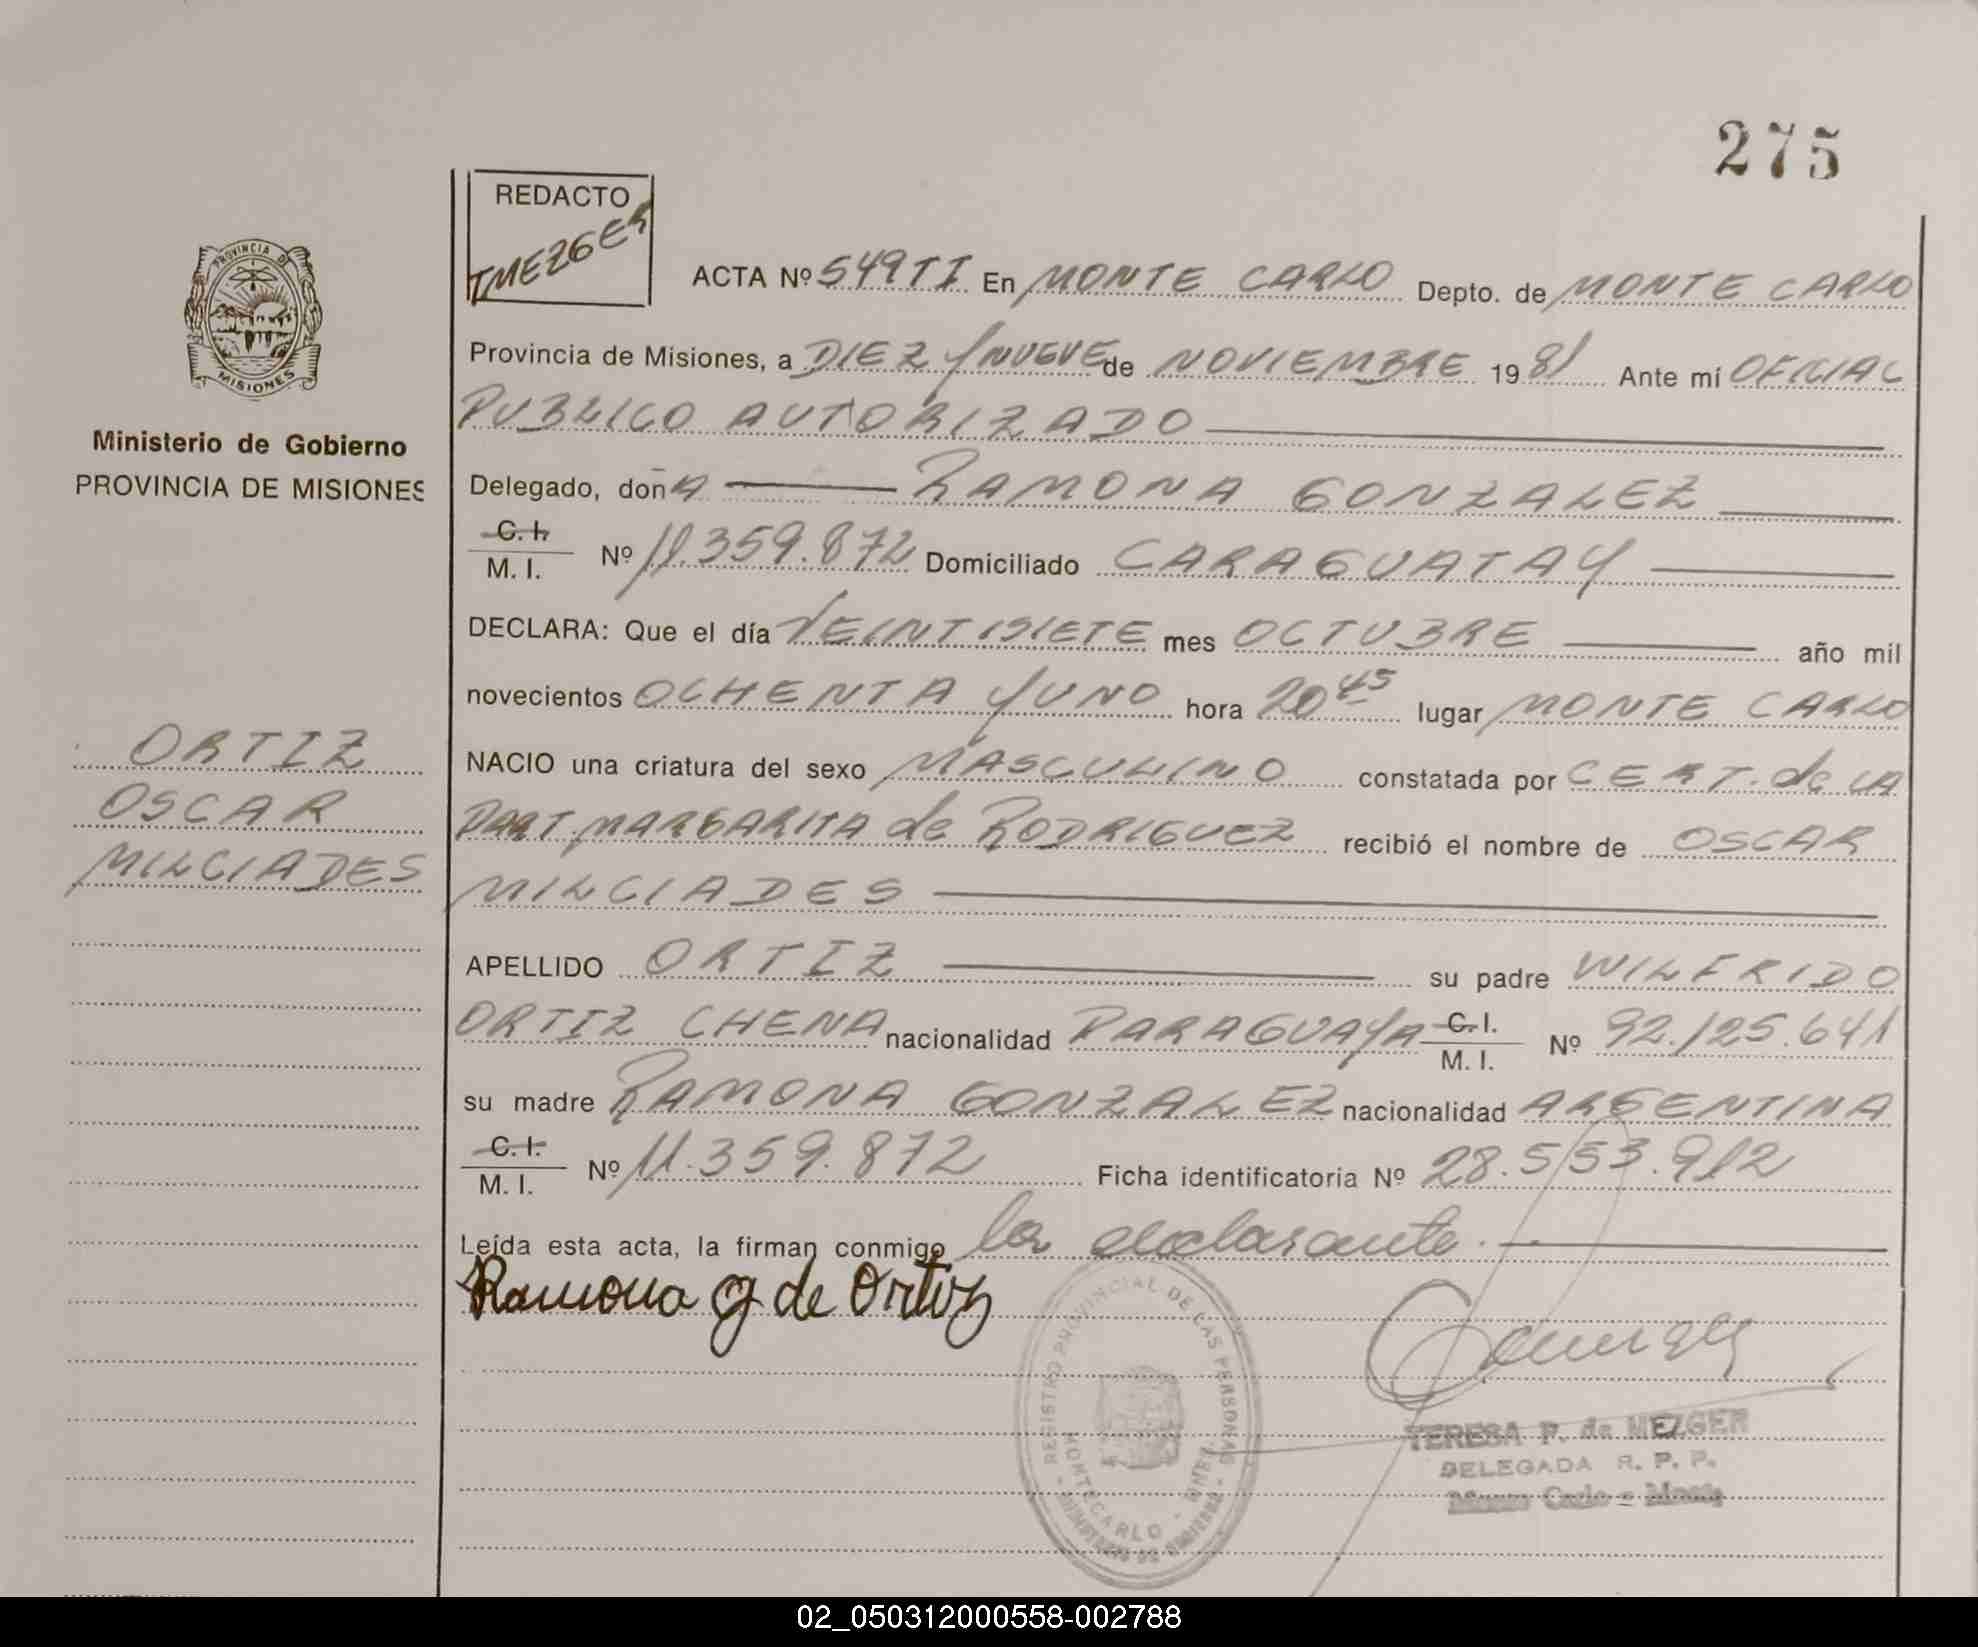 275
REDACTO
TMEZGER
PROVINCIA DE
MISIONES
Ministerio de Gobierno
PROVINCIA DE MISIONES
ORTIZ
OSCAR
MILCIADES
ACTA Nº 549TI En MONTE CARLO Depto. de MONTE CARLO
Provincia de Misiones, a DIEZ Y NUEVE de NOVIEMBRE 1981 Ante mí OFICIAL
PUBLICO AUTORIZADO
Delegado, doñA RAMONA GONZALEZ
C. I. / M. I. Nº 11.359.872 Domiciliado CARAGUATAY
DECLARA: Que el día VEINTISIETE mes OCTUBRE año mil
novecientos OCHENTA Y UNO hora 20 45 lugar MONTE CARLO
NACIO una criatura del sexo MASCULINO constatada por CERT. de LA
PART. MARGARITA de RODRIGUEZ recibió el nombre de OSCAR
MILCIADES
APELLIDO ORTIZ su padre WILFRIDO
ORTIZ CHENA nacionalidad PARAGUAYA C. I. / M. I. Nº 92.125.641
su madre RAMONA GONZALEZ nacionalidad ARGENTINA
C. I. / M. I. Nº 11.359.872 Ficha identificatoria Nº 28.553.912
Leída esta acta, la firman conmigo la declarante.
Ramona G de Ortiz
REGISTRO PROVINCIAL DE LAS PERSONAS
MONTECARLO
TERESA F. de MEZGER
DELEGADA R. P. P.
Monte Carlo - Mnes
02_050312000558-002788